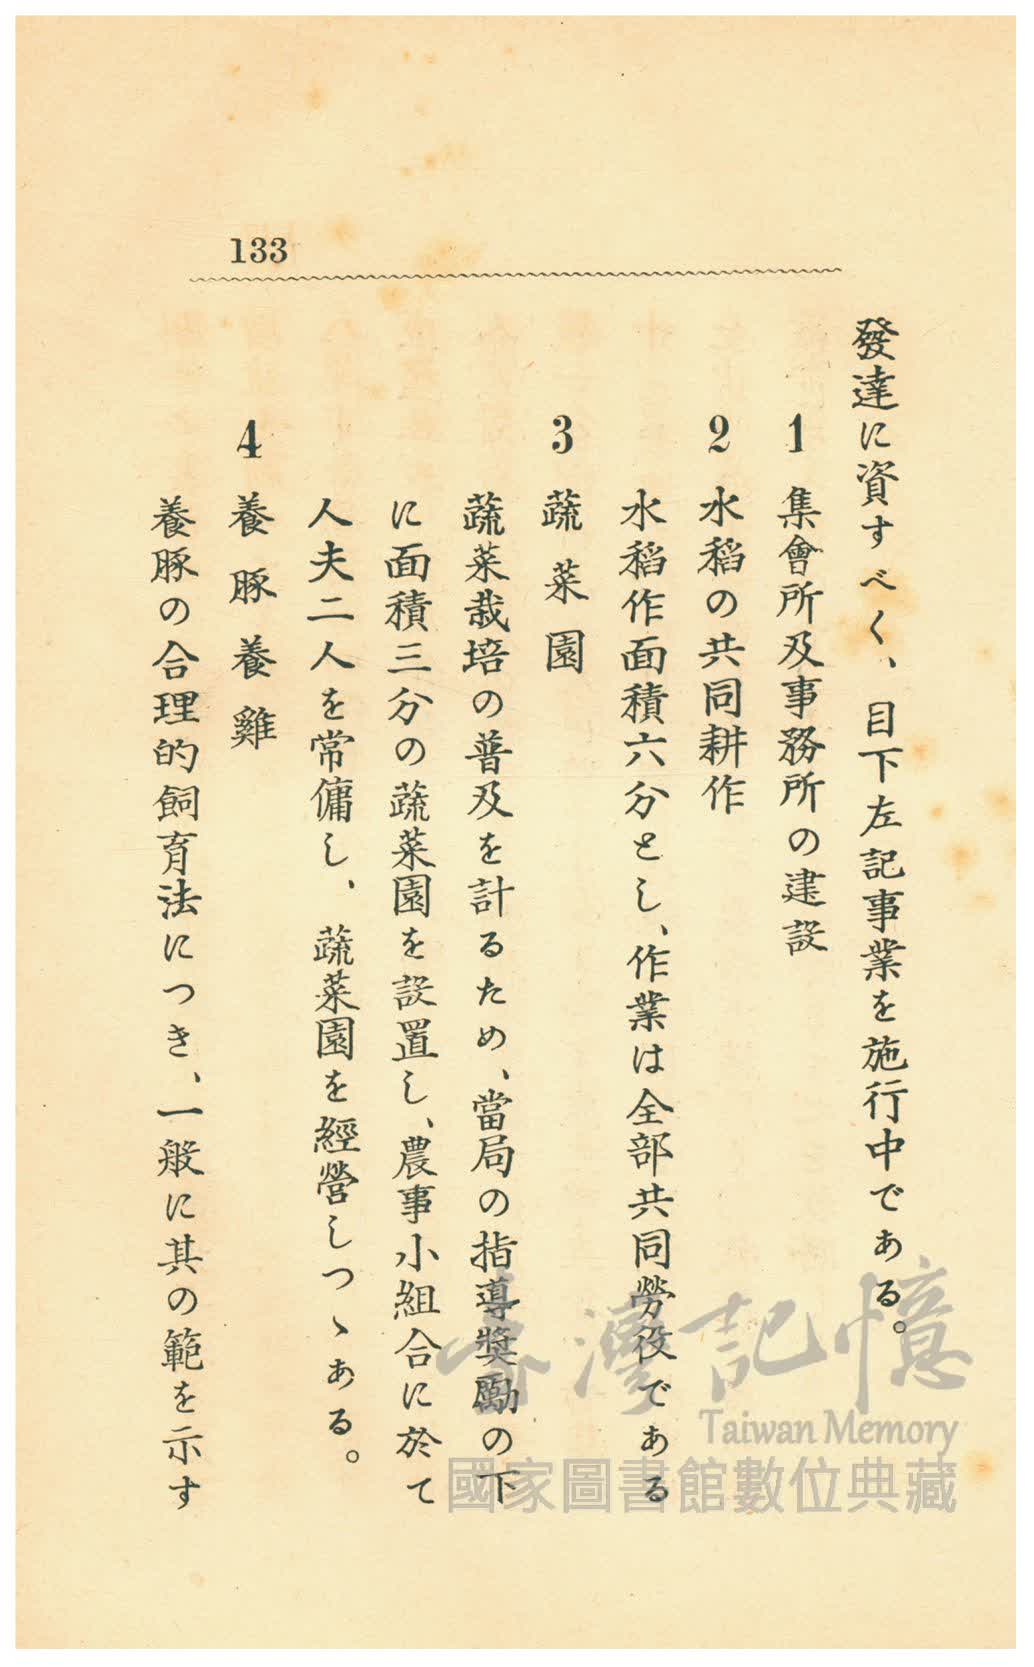 133
發達に資すべく、目下左記事業を施行中である。
1 集會所及事務所の建設
2 水稻の共同耕作
水稻作面積六分とし、作業は全部共同勞役である
3 蔬菜園
蔬菜栽培の普及を計るため、當局の指導獎勵の下
に面積三分の蔬菜園を設置し、農事小組合に於て
人夫二人を常傭し、蔬菜園を經營しつゝある。
4 養豚養雞
養豚の合理的飼育法につき、一般に其の範を示す
臺灣記憶
Taiwan Memory
國家圖書館數位典藏